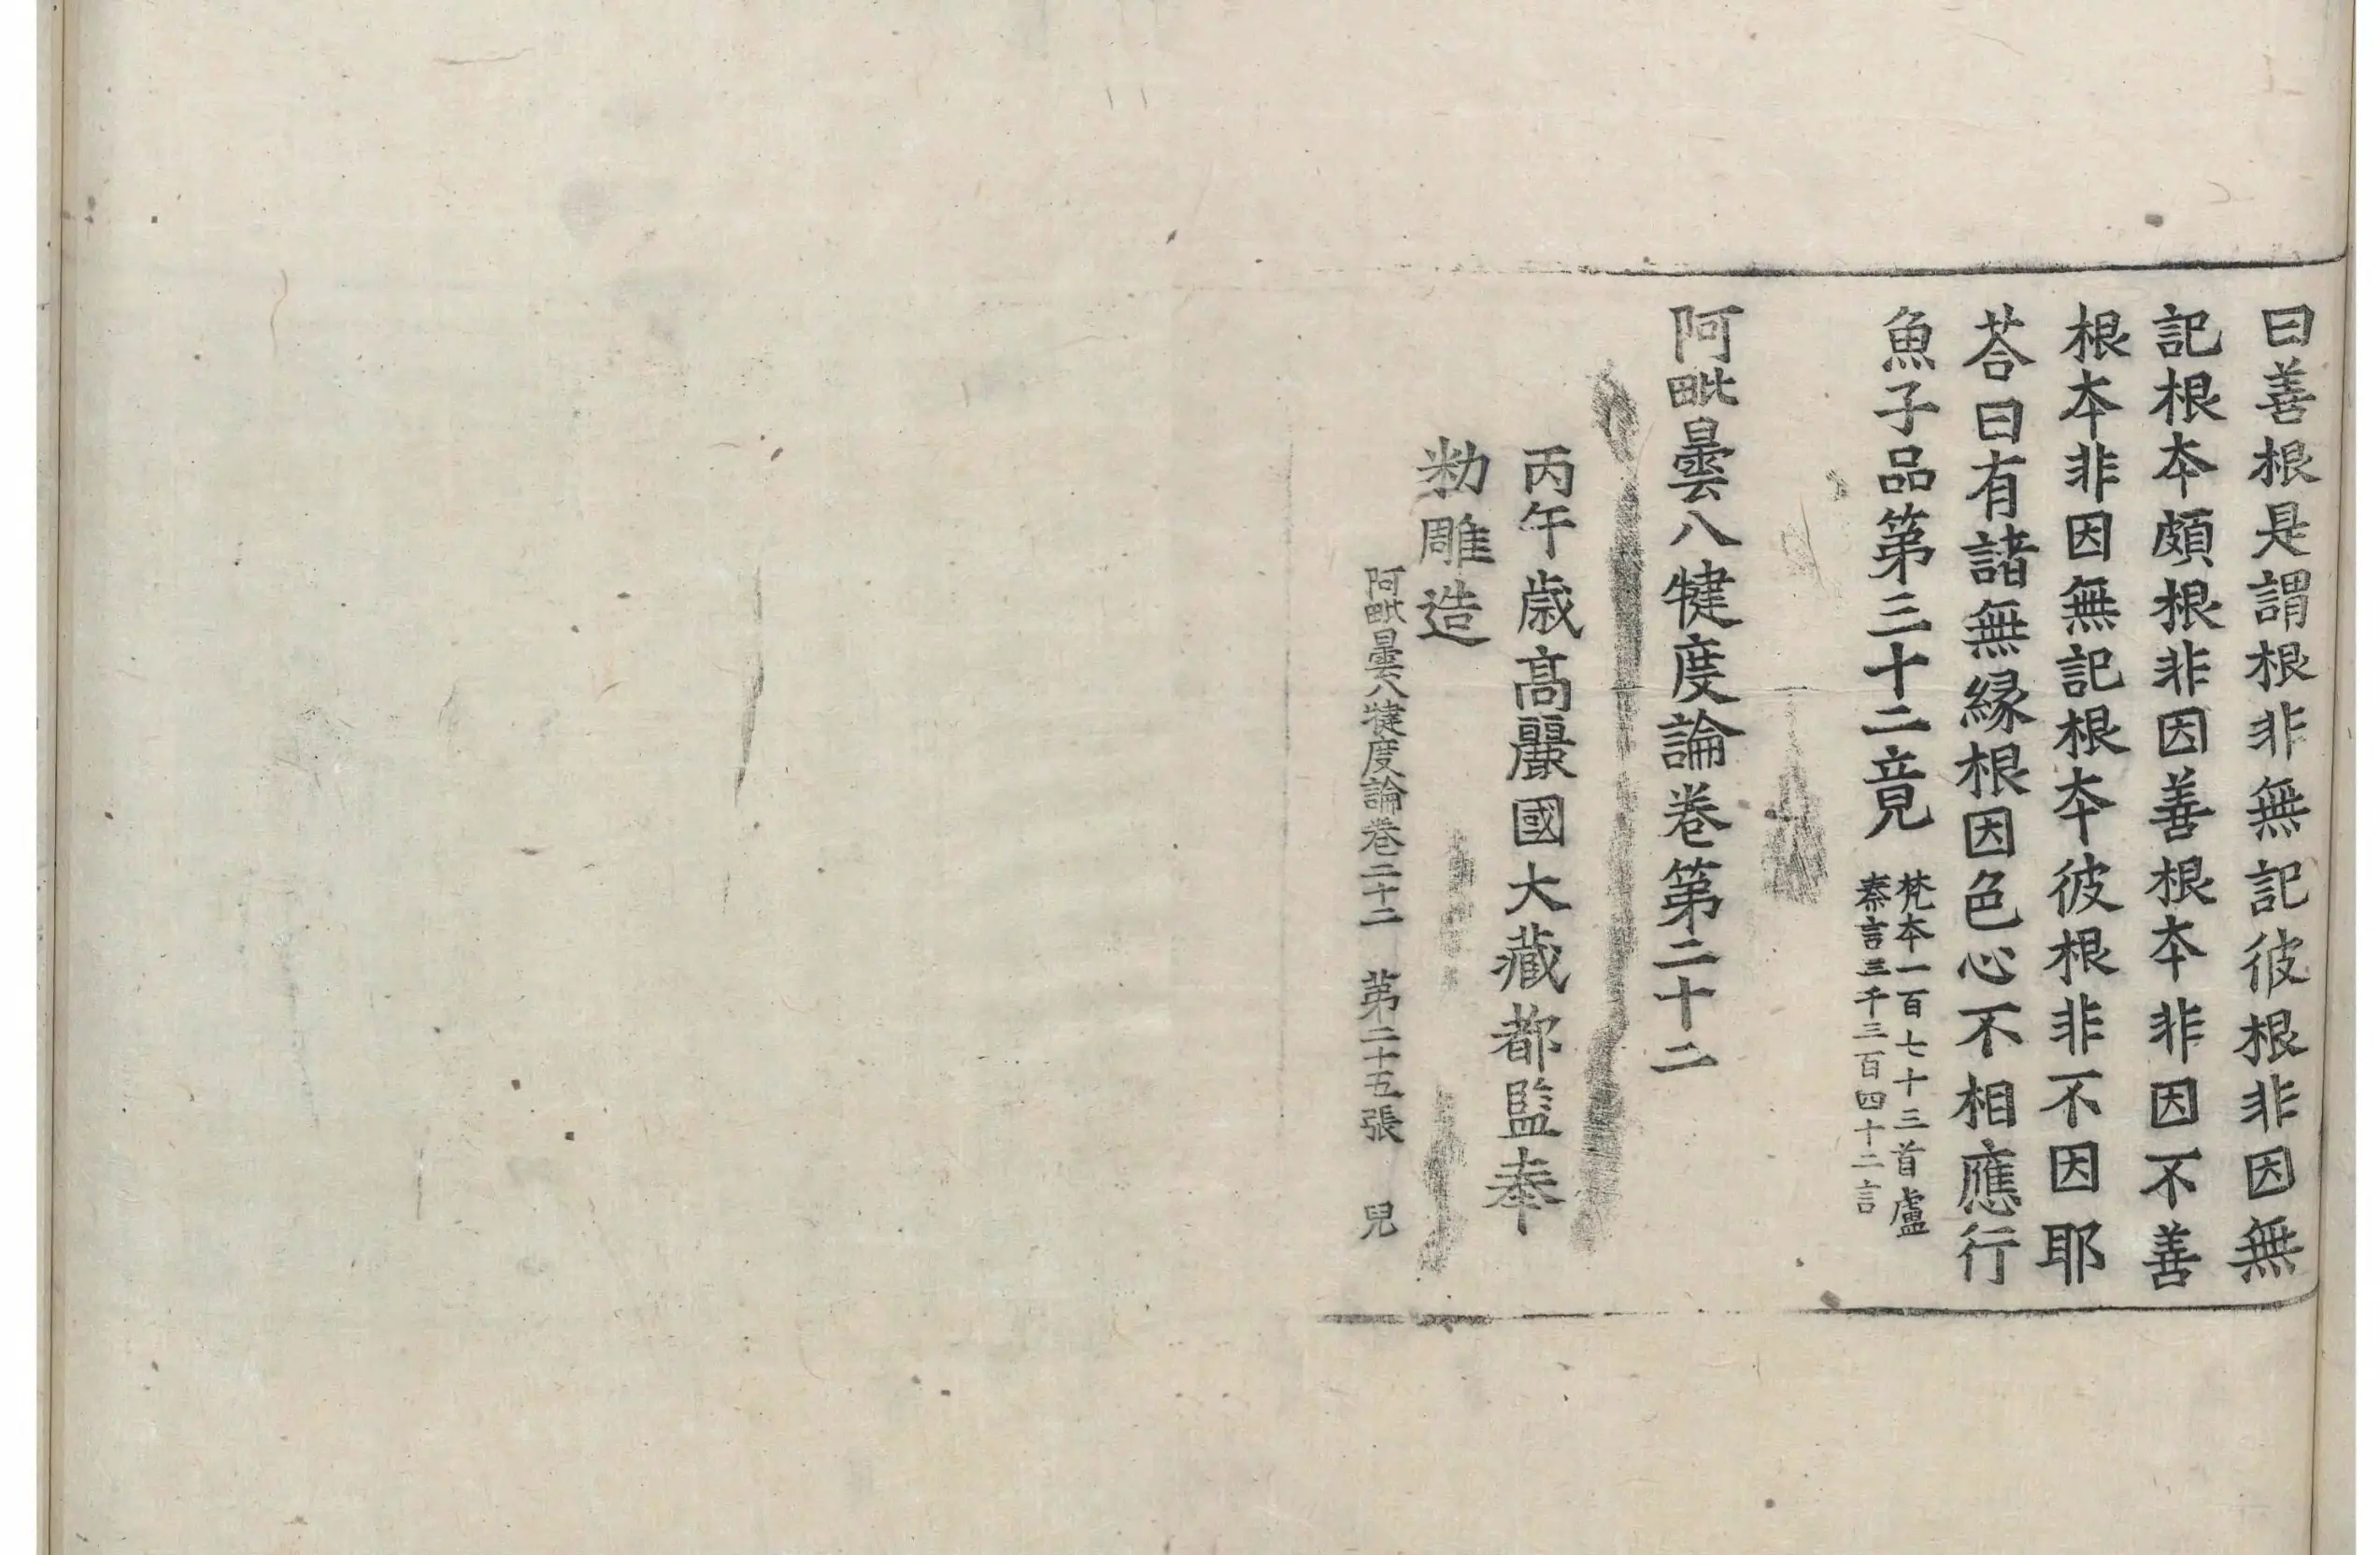 曰善根是謂根非無記彼根非因無
記根夲頗根非因善根夲非因不善
根夲非因無記根夲彼根非不因耶
荅曰有諸無縁根因色心不相應行
魚子品第三十二竟
梵夲一百七十三首盧
秦言三千三百四十二言
阿毗曇八犍度論卷第二十二
丙午歲高麗國大藏都監奉
勑雕造
阿毗曇八犍度論卷二十二 第二十五張 兒